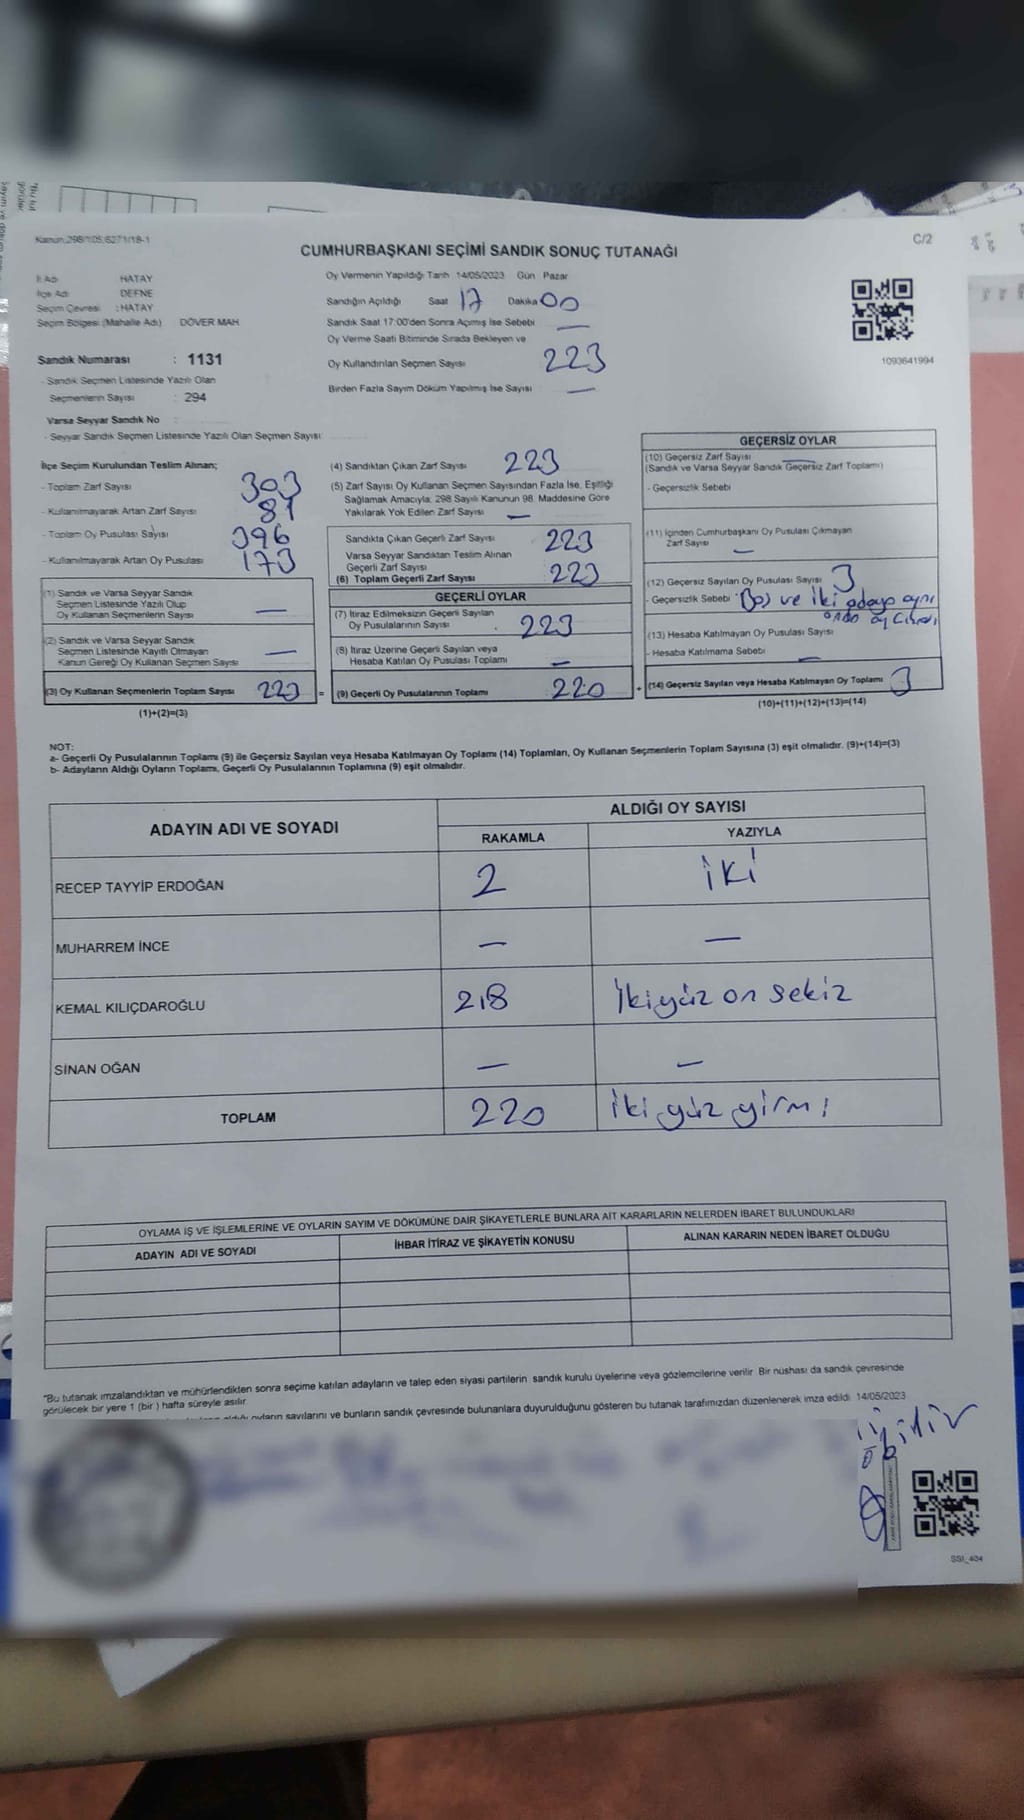 Kanun:298/105,6271/18-1
C/2
CUMHURBAŞKANI SEÇİMİ SANDIK SONUÇ TUTANAĞI
İl Adı HATAY
İlçe Adı DEFNE
Seçim Çevresi : HATAY
Seçim Bölgesi (Mahalle Adı) DÖVER MAH
Sandık Numarası : 1131
- Sandık Seçmen Listesinde Yazılı Olan
Seçmenlerin Sayısı : 294
Varsa Seyyar Sandık No
- Seyyar Sandık Seçmen Listesinde Yazılı Olan Seçmen Sayısı
Oy Vermenin Yapıldığı Tarih 14/05/2023 Gün Pazar
Sandığın Açıldığı Saat 17 Dakika 00
Sandık Saat 17:00'den Sonra Açılmış İse Sebebi —
Oy Verme Saati Bitiminde Sırada Bekleyen ve
Oy Kullandırılan Seçmen Sayısı 223
Birden Fazla Sayım Döküm Yapılmış İse Sayısı —
1093641994
İlçe Seçim Kurulundan Teslim Alınan;
- Toplam Zarf Sayısı 303
- Kullanılmayarak Artan Zarf Sayısı 81
- Toplam Oy Pusulası Sayısı 396
- Kullanılmayarak Artan Oy Pusulası 173
(1) Sandık ve Varsa Seyyar Sandık
Seçmen Listesinde Yazılı Olup
Oy Kullanan Seçmenlerin Sayısı —
(2) Sandık ve Varsa Seyyar Sandık
Seçmen Listesinde Kayıtlı Olmayan
Kanun Gereği Oy Kullanan Seçmen Sayısı —
(3) Oy Kullanan Seçmenlerin Toplam Sayısı 223 =
(1)+(2)=(3)
(4) Sandıktan Çıkan Zarf Sayısı 223
(5) Zarf Sayısı Oy Kullanan Seçmen Sayısından Fazla İse, Eşitliği
Sağlamak Amacıyla; 298 Sayılı Kanunun 98. Maddesine Göre
Yakılarak Yok Edilen Zarf Sayısı —
Sandıkta Çıkan Geçerli Zarf Sayısı 223
Varsa Seyyar Sandıktan Teslim Alınan
Geçerli Zarf Sayısı
(6) Toplam Geçerli Zarf Sayısı 223
GEÇERLİ OYLAR
(7) İtiraz Edilmeksizin Geçerli Sayılan
Oy Pusulalarının Sayısı 223
(8) İtiraz Üzerine Geçerli Sayılan veya
Hesaba Katılan Oy Pusulası Toplamı —
(9) Geçerli Oy Pusulalarının Toplamı 220 +
GEÇERSİZ OYLAR
(10) Geçersiz Zarf Sayısı —
(Sandık ve Varsa Seyyar Sandık Geçersiz Zarf Toplamı)
- Geçersizlik Sebebi
(11) İçinden Cumhurbaşkanı Oy Pusulası Çıkmayan
Zarf Sayısı —
(12) Geçersiz Sayılan Oy Pusulası Sayısı 3
- Geçersizlik Sebebi Boş ve iki adaya aynı
anda oy
(13) Hesaba Katılmayan Oy Pusulası Sayısı
- Hesaba Katılmama Sebebi —
(14) Geçersiz Sayılan veya Hesaba Katılmayan Oy Toplamı 3
(10)+(11)+(12)+(13)=(14)
NOT:
a- Geçerli Oy Pusulalarının Toplamı (9) ile Geçersiz Sayılan veya Hesaba Katılmayan Oy Toplamı (14) Toplamları, Oy Kullanan Seçmenlerin Toplam Sayısına (3) eşit olmalıdır. (9)+(14)=(3)
b- Adayların Aldığı Oyların Toplamı, Geçerli Oy Pusulalarının Toplamına (9) eşit olmalıdır.
ADAYIN ADI VE SOYADI
ALDIĞI OY SAYISI
RAKAMLA YAZIYLA
RECEP TAYYİP ERDOĞAN 2 iki
MUHARREM İNCE — —
KEMAL KILIÇDAROĞLU 218 İkiyüz on sekiz
SİNAN OĞAN — —
TOPLAM 220 iki yüz yirmi
OYLAMA İŞ VE İŞLEMLERİNE VE OYLARIN SAYIM VE DÖKÜMÜNE DAİR ŞİKAYETLERLE BUNLARA AİT KARARLARIN NELERDEN İBARET BULUNDUKLARI
ADAYIN ADI VE SOYADI İHBAR İTİRAZ VE ŞİKAYETİN KONUSU ALINAN KARARIN NEDEN İBARET OLDUĞU
"Bu tutanak imzalandıktan ve mühürlendikten sonra seçime katılan adayların ve talep eden siyasi partilerin sandık kurulu üyelerine veya gözlemcilerine verilir. Bir nüshası da sandık çevresinde
görülecek bir yere 1 (bir) hafta süreyle asılır.
aldığı oyların sayılarını ve bunların sandık çevresinde bulunanlara duyurulduğunu gösteren bu tutanak tarafımızdan düzenlenerek imza edildi. 14/05/2023
SSI_404